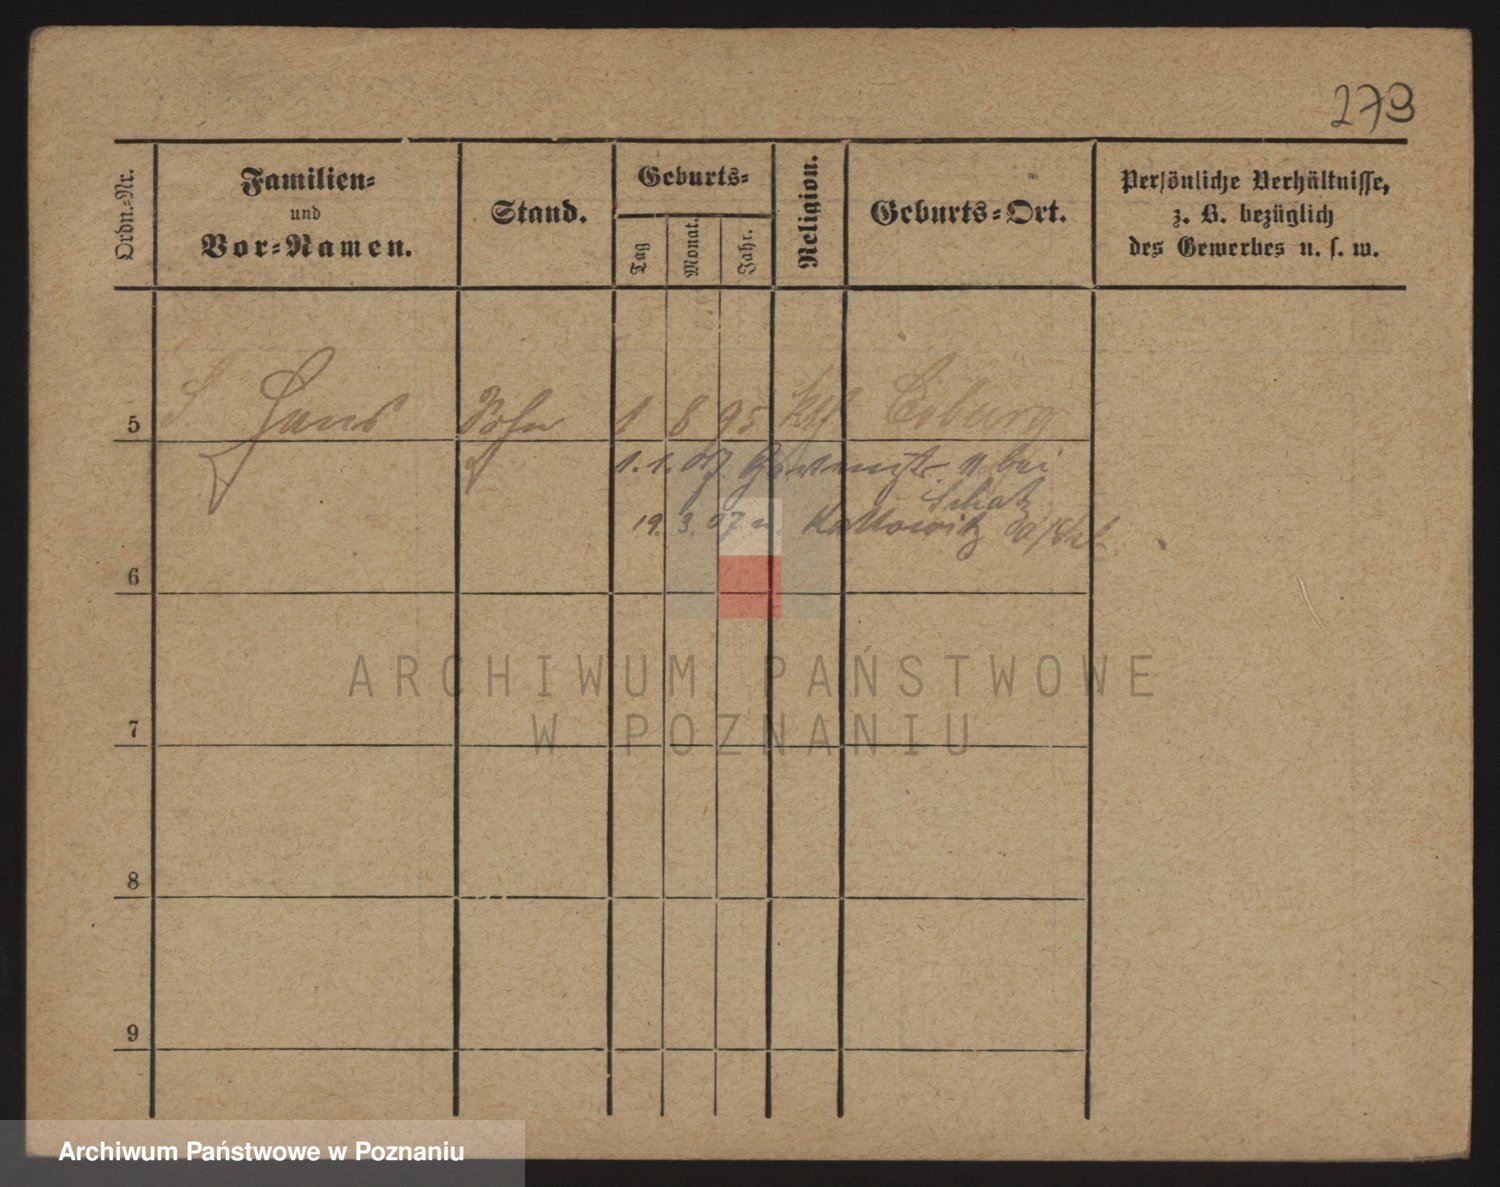 273
Ordn.-Nr.
Familien-
und
Vor-Namen.
Stand.
Geburts-
Tag
Monat.
Jahr.
Religion.
Geburts-Ort.
Persönliche Verhältnisse,
z. B. bezüglich
des Gewerbes u. s. w.
5 Hans Sohn 1 8 95
1. 1. 07. bei
19. 3. 07. n. Kattowitz
6
7
8
9
ARCHIWUM PAŃSTWOWE
W POZNANIU
Archiwum Państwowe w Poznaniu